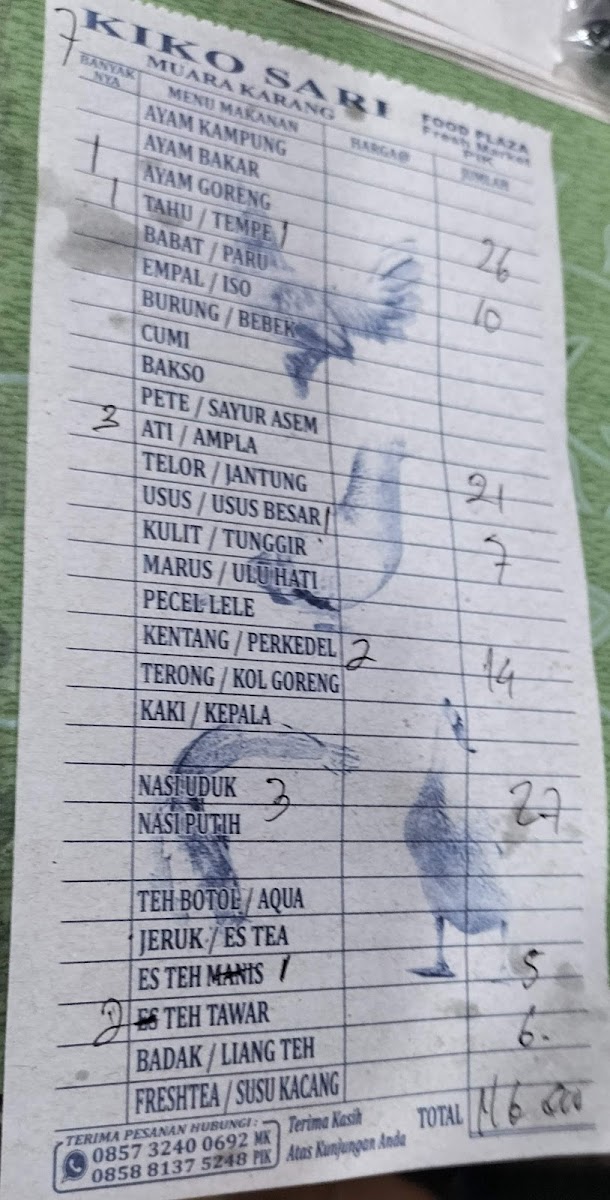 7
KIKO SARI
MUARA KARANG
FOOD PLAZA
Fresh Market
PIK
BANYAK NYA MENU MAKANAN HARGA@ JUMLAH
AYAM KAMPUNG
AYAM BAKAR
1 AYAM GORENG 26
1 TAHU / TEMPE 1 10
BABAT / PARU
EMPAL / ISO
BURUNG / BEBEK
CUMI
BAKSO
PETE / SAYUR ASEM
3 ATI / AMPLA 21
TELOR / JANTUNG
USUS / USUS BESAR 1 7
KULIT / TUNGGIR
MARUS / ULU HATI
PECEL LELE
KENTANG / PERKEDEL 2 14
TERONG / KOL GORENG
KAKI / KEPALA
NASI UDUK 3 27
NASI PUTIH
TEH BOTOL / AQUA
JERUK / ES TEA
ES TEH MANIS 1 5
2 ES TEH TAWAR 6.
BADAK / LIANG TEH
FRESHTEA / SUSU KACANG
TOTAL 116 000
TERIMA PESANAN HUBUNGI :
0857 3240 0692 MK
0858 8137 5248 PIK
Terima Kasih
Atas Kunjungan Anda